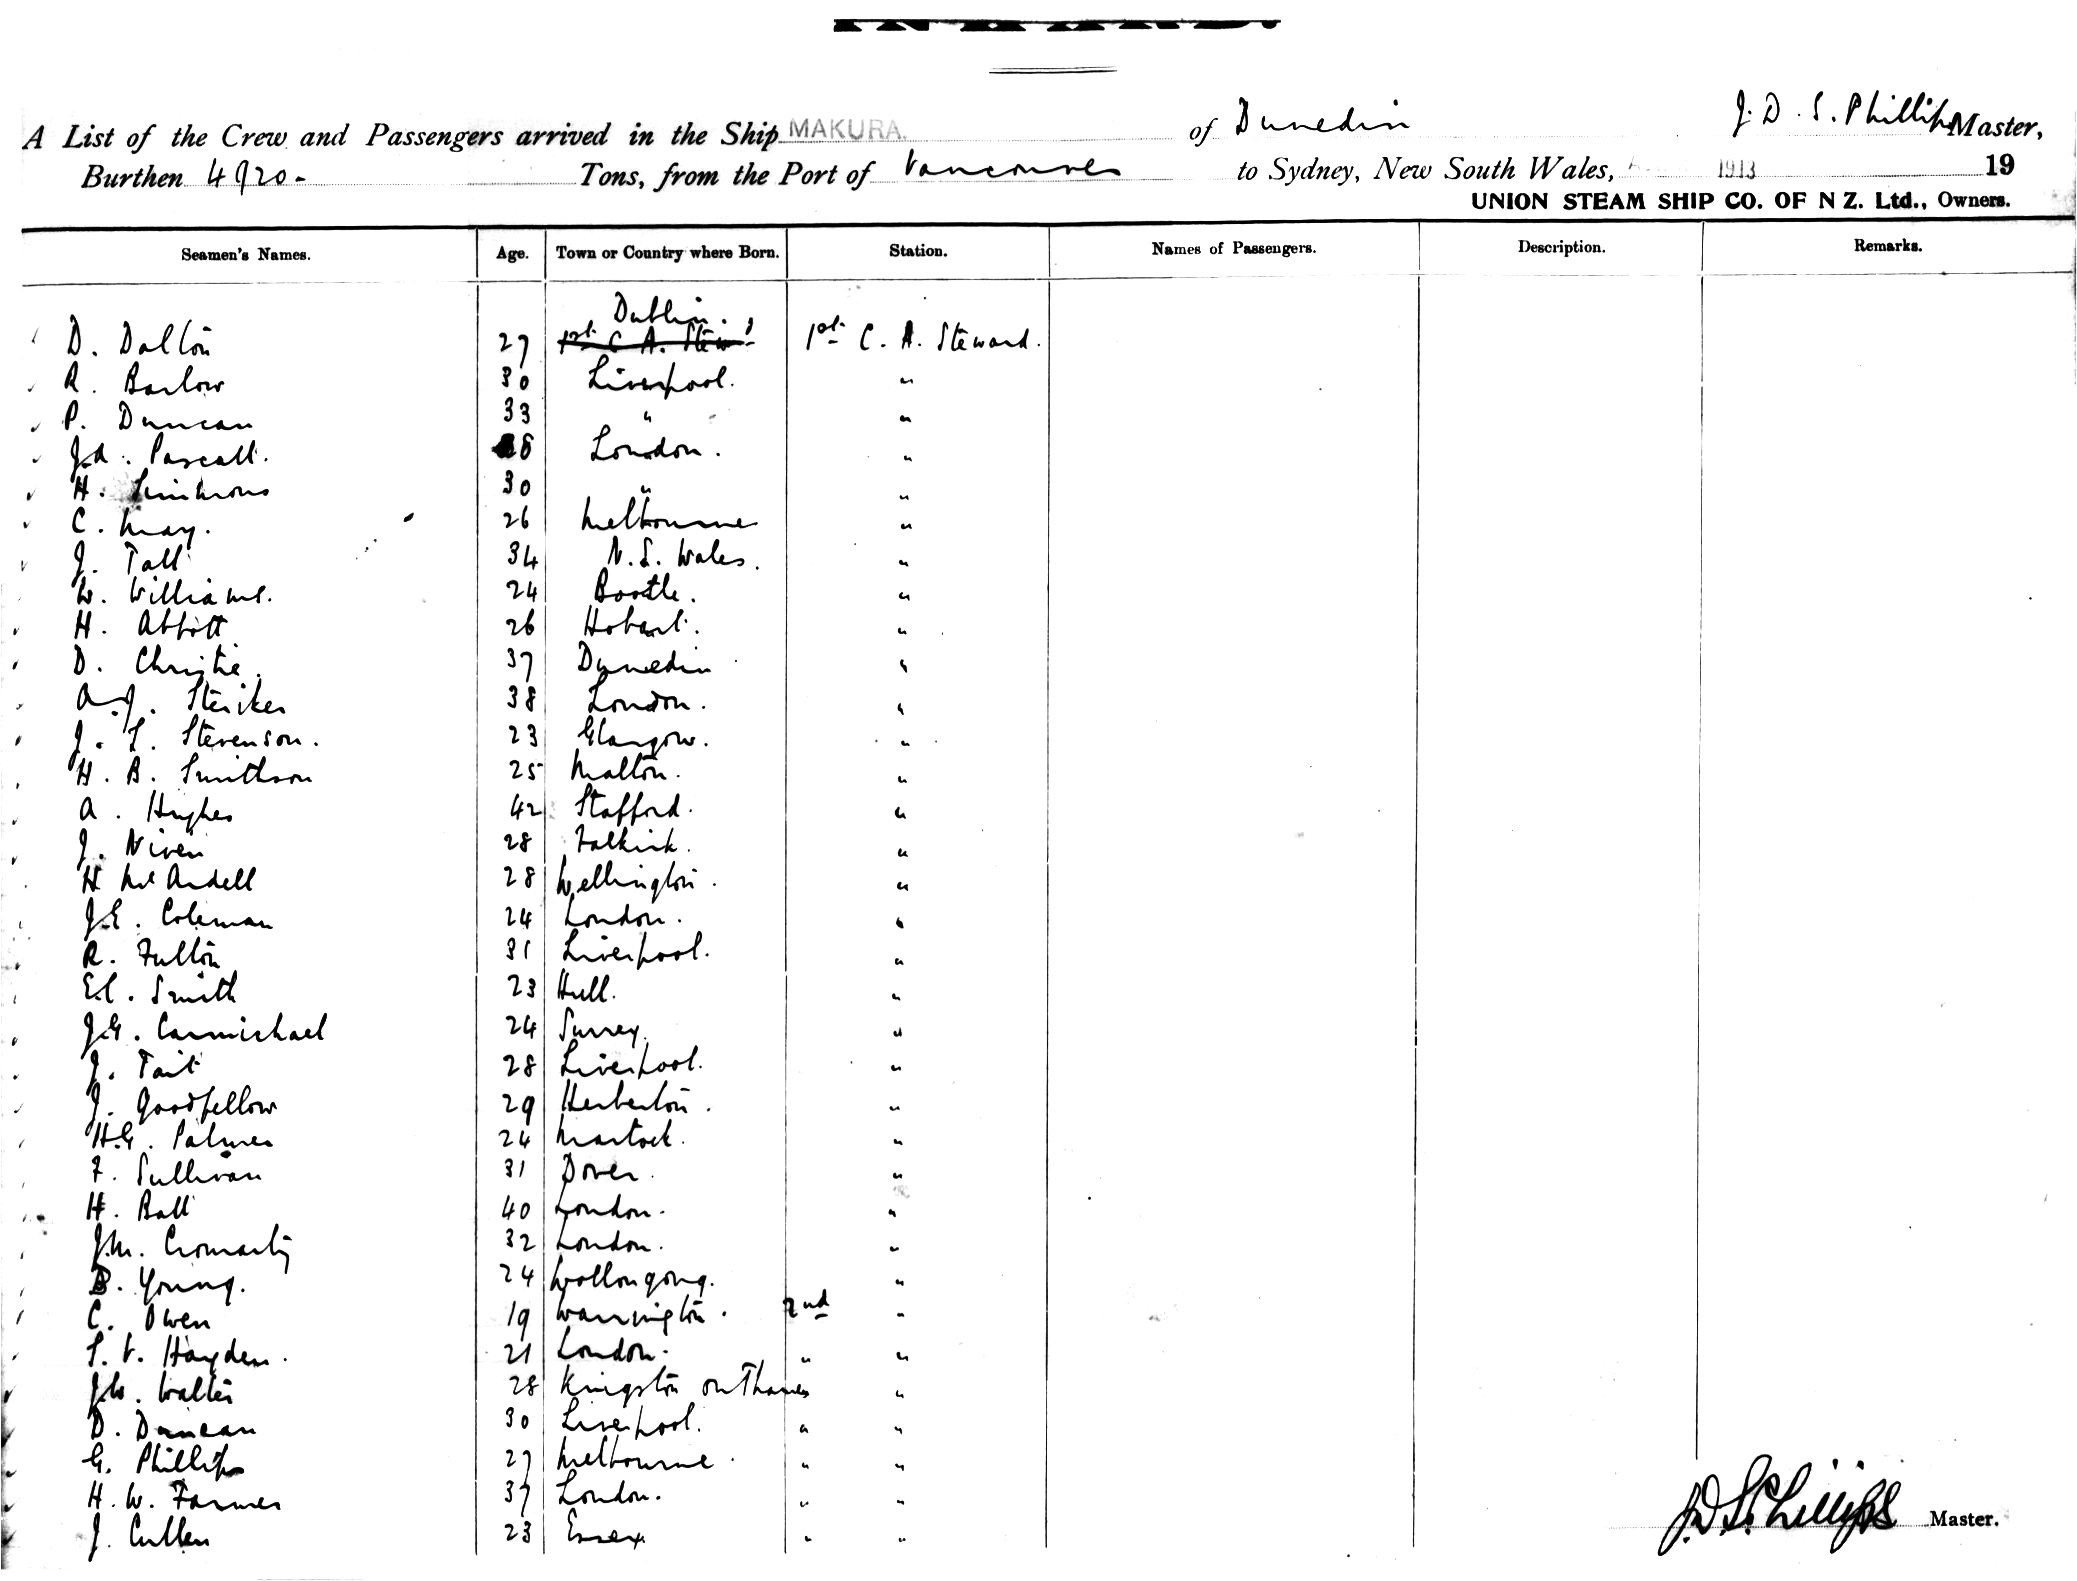 A List of the Crew and Passengers arrived in the Ship MAKURA. of Dunedin J. D. S. Phillips Master,
Burthen 4920 - Tons, from the Port of Vancouver to Sydney, New South Wales, 1913 19
UNION STEAM SHIP CO. OF N Z. Ltd., Owners.
Seamen's Names. Age. Town or Country where Born. Station. Names of Passengers. Description. Remarks.
Dublin.
D. Dalton 27 1st C. A. Stewd 1st C. A. Steward.
R. Barlow 30 Liverpool. "
P. Duncan 33 " "
J.A. Pascall. 28 London. "
H. Simmons 30 " "
C. May. 26 Melbourne "
J. Tall 34 N. S. Wales. "
W. Williams. 24 Bootle. "
H. Abbott 26 Hobart. "
D. Christie. 37 Dunedin "
A.J. Steriker 38 London. "
J. S. Stevenson. 23 Glasgow. "
H. B. Smithson 25 Malton. "
A. Hughes 42 Stafford. "
J. Niven 28 Falkirk. "
H McArdell 28 Wellington. "
J.E. Coleman 24 London. "
R. Fulton 31 Liverpool. "
E.C. Smith 23 Hull. "
J.G. Carmichael 24 Surrey. "
J. Tait 28 Liverpool. "
J. Goodfellow 29 Herberton. "
H.G. Palmer 24 Martock. "
F. Sullivan 31 Dover. "
H. Ball 40 London. "
J.M. Cromarty 32 London. "
B. Young. 24 Wollongong. "
C. Owen 19 Warrington. 2nd "
S. V. Hayden. 21 London. " "
J.W. Walter 28 Kingston on Thames "
D. Duncan 30 Liverpool. " "
G. Phillips 27 Melbourne. " "
H. W. Farmer 37 London. " "
J. Cullen 23 Essex " "
J.D.S. Phillips Master.